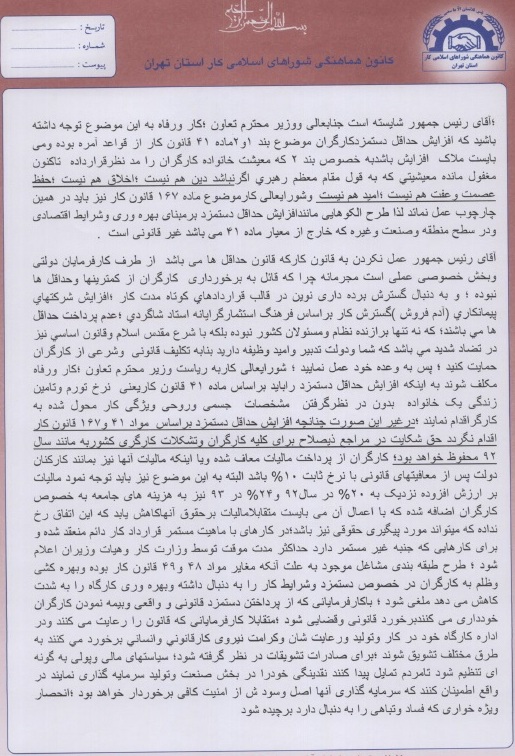 بسم الله الرحمن الرحیم
تاریخ :
شماره :
پیوست :
کانون هماهنگی شوراهای اسلامی کار
استان تهران
کانون هماهنگی شوراهای اسلامی کار استان تهران
؛آقای رئیس جمهور شایسته است جنابعالی ووزیر محترم تعاون ؛کار ورفاه به این موضوع توجه داشته
باشید که افزایش حداقل دستمزدکارگران موضوع بند ۱و۲ماده ۴۱ قانون کار از قواعد آمره بوده ومی
بایست ملاک افزایش باشدبه خصوص بند ۲ که معیشت خانواده کارگران را مد نظرقرارداده تاکنون
مغفول مانده معیشتی که به قول مقام معظم رهبری اگرنباشد دین هم نیست ؛اخلاق هم نیست ؛حفظ
عصمت وعفت هم نیست ؛امید هم نیست وشورایعالی کارموضوع ماده ۱۶۷ قانون کار نیز باید در همین
چارچوب عمل نماند لذا طرح الگوهایی مانندافزایش حداقل دستمزد برمبنای بهره وری وشرایط اقتصادی
ودر سطح منطقه وصنعت وغیره که خارج از معیار ماده ۴۱ می باشد غیر قانونی است .
آقای رئیس جمهور عمل نکردن به قانون کارکه قانون حداقل ها می باشد از طرف کارفرمایان دولتی
وبخش خصوصی عملی است مجرمانه چرا که قائل به برخورداری کارگران از کمترینها وحداقل ها
نبوده ؛ و به دنبال گسترش برده داری نوین در قالب قراردادهای کوتاه مدت کار ؛افزایش شرکتهای
پیمانکاری (آدم فروش )گسترش کار براساس فرهنگ استثمارگرایانه استاد شاگردی ؛عدم پرداخت حداقل
ها می باشند؛ که نه تنها برازنده نظام ومسئولان کشور نبوده بلکه با شرع مقدس اسلام وقانون اساسی نیز
در تضاد شدید می باشد که شما ودولت تدبیر وامید وظیفه دارید بنابه تکلیف قانونی وشرعی از کارگران
حمایت کنید ؛ پس به وعده خود عمل نمایید ؛ شورایعالی کاربه ریاست وزیر محترم تعاون ؛کار ورفاه
مکلف شوند به اینکه افزایش حداقل دستمزد راباید براساس ماده ۴۱ قانون کاریعنی نرخ تورم وتامین
زندگی یک خانواده بدون در نظرگرفتن مشخصات جسمی وروحی ویژگی کار محول شده به
کارگراقدام نمایند ؛درغیر این صورت چنانچه افزایش حداقل دستمزد براساس مواد ۴۱ و۱۶۷ قانون کار
اقدام نگردد حق شکایت در مراجع ذیصلاح برای کلیه کارگران وتشکلات کارگری کشوربه مانند سال
۹۲ محفوظ خواهد بود؛ کارگران از پرداخت مالیات معاف شده ویا اینکه مالیات آنها نیز بمانند کارکنان
دولت پس از معافیتهای قانونی با نرخ ثابت ۱۰% باشد البته به این موضوع نیز باید توجه نمود مالیات
بر ارزش افزوده نزدیک به ۲۰% در سال۹۲ و۲۴% در ۹۳ نیز به هزینه های جامعه به خصوص
کارگران اضافه شده که با اعمال ان می بایست متقابلامالیات برحقوق آنهاکاهش یابد که این اتفاق رخ
نداده که میتواند مورد پیگیری حقوقی نیز باشد؛در کارهای با ماهیت مستمر قرارداد کار دائم منعقد شده و
برای کارهایی که جنبه غیر مستمر دارد حداکثر مدت موقت توسط وزارت کار وهیات وزیران اعلام
شود ؛ طرح طبقه بندی مشاغل موجود به علت آنکه مغایر مواد ۴۸ و۴۹ قانون کار بوده وبهره کشی
وظلم به کارگران در خصوص دستمزد وشرایط کار را به دنبال داشته وبهره وری کارگاه را به شدت
کاهش می دهد ملغی شود ؛ باکارفرمایانی که از پرداختن دستمزد قانونی و واقعی وبیمه نمودن کارگران
خودداری می کنندبرخورد قانونی وقضایی شود ؛متقابلا کارفرمایانی که قانون را رعایت می کنند ودر
اداره کارگاه خود در کار وتولید ورعایت شان وکرامت نیروی کارقانونی وانسانی برخورد می کنند به
طرق مختلف تشویق شوند ؛برای صادرات تشویقات در نظر گرفته شود؛ سیاستهای مالی وپولی به گونه
ای تنظیم شود تامردم تمایل پیدا کنند نقدینگی خودرا در بخش صنعت وتولید سرمایه گذاری نمایند در
واقع اطمینان کنند که سرمایه گذاری آنها اصل وسود ش از امنیت کافی برخوردار خواهد بود ؛انحصار
ویژه خواری که فساد وتباهی را به دنبال دارد برچیده شود